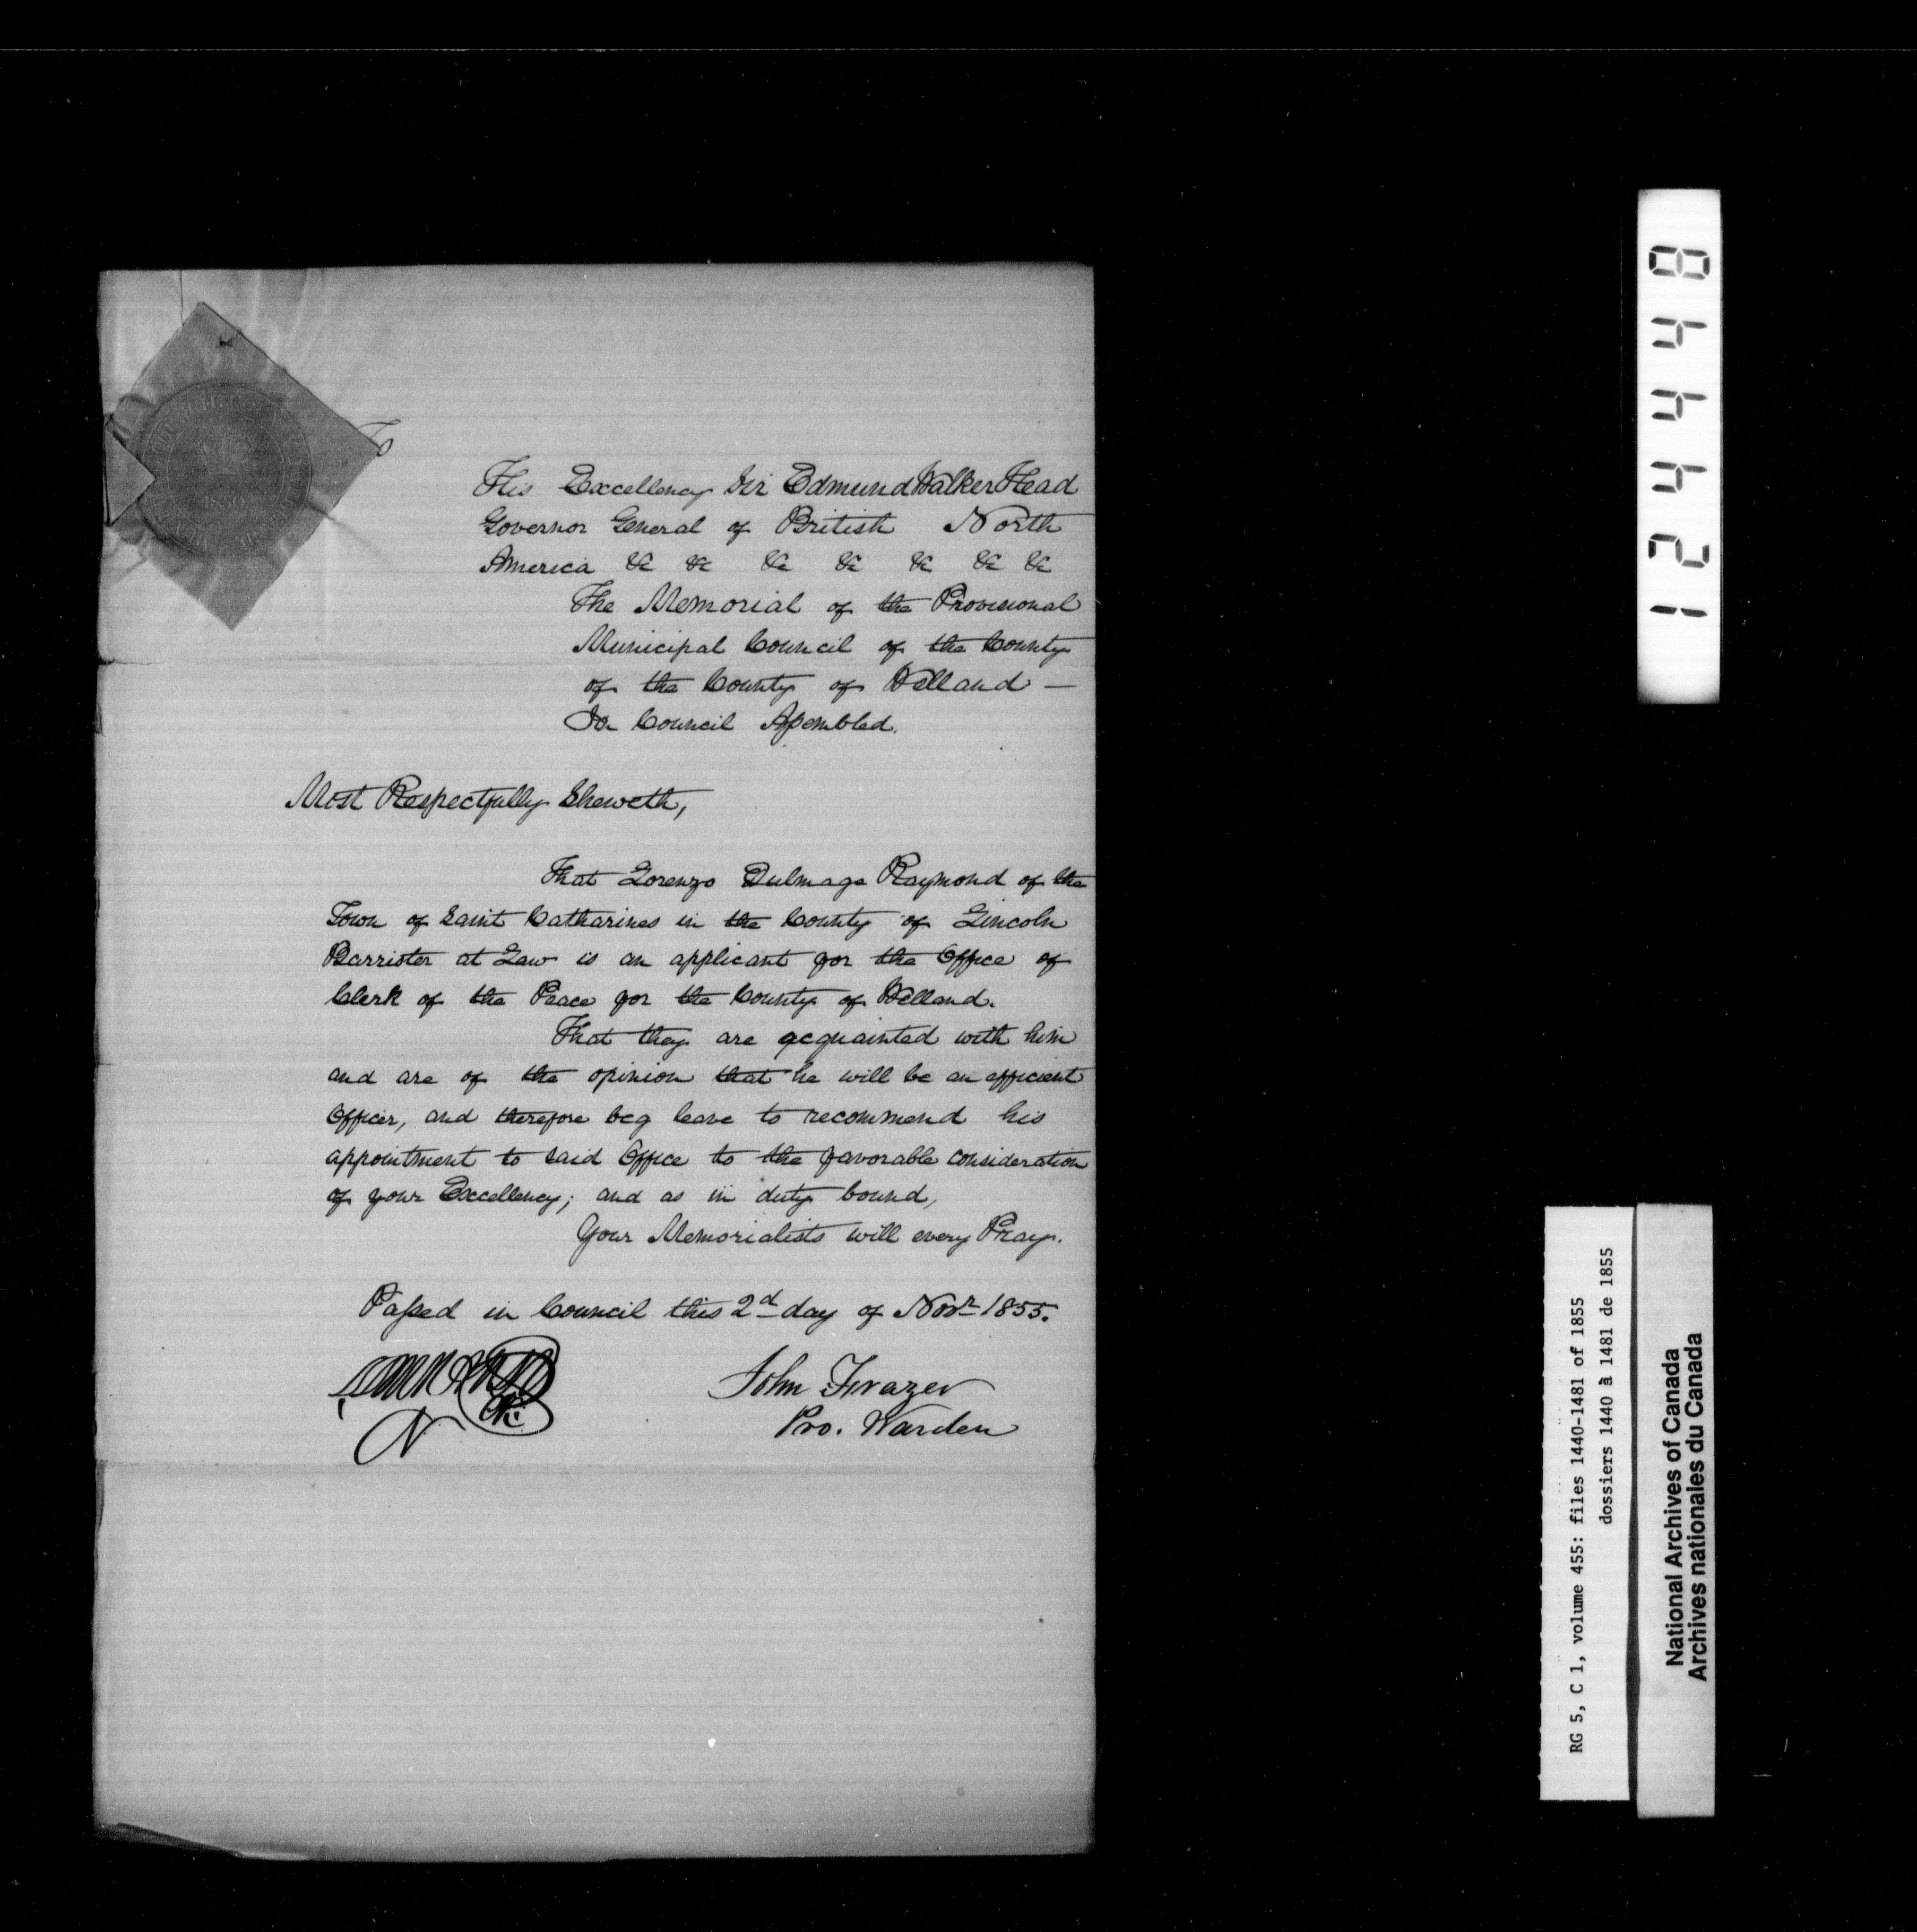 To
His Excellency Sir Edmund Walker Head
Governor General of British North
America &c &c &c &c &c &c &c
The Memorial of the Provisional
Municipal Council of the County
of the County of Welland —
In Council Assembled.
Most Respectfully Sheweth,
That Lorenzo Dulmage Raymond of the
Town of Saint Catharines in the County of Lincoln
Barrister at Law is an applicant for the Office of
Clerk of the Peace for the County of Welland.
That they are acquainted with him
and are of the opinion that he will be an efficient
Officer, and therefore beg leave to recommend his
appointment to said Office to the favorable consideration
of your Excellency; and as in duty bound,
Your Memorialists will every Pray.
Passed in Council this 2d day of Novr 1855.
John Frazer
Pro. Warden
124448
RG 5, C 1, volume 455: files 1440-1481 of 1855
dossiers 1440 à 1481 de 1855
National Archives of Canada
Archives nationales du Canada